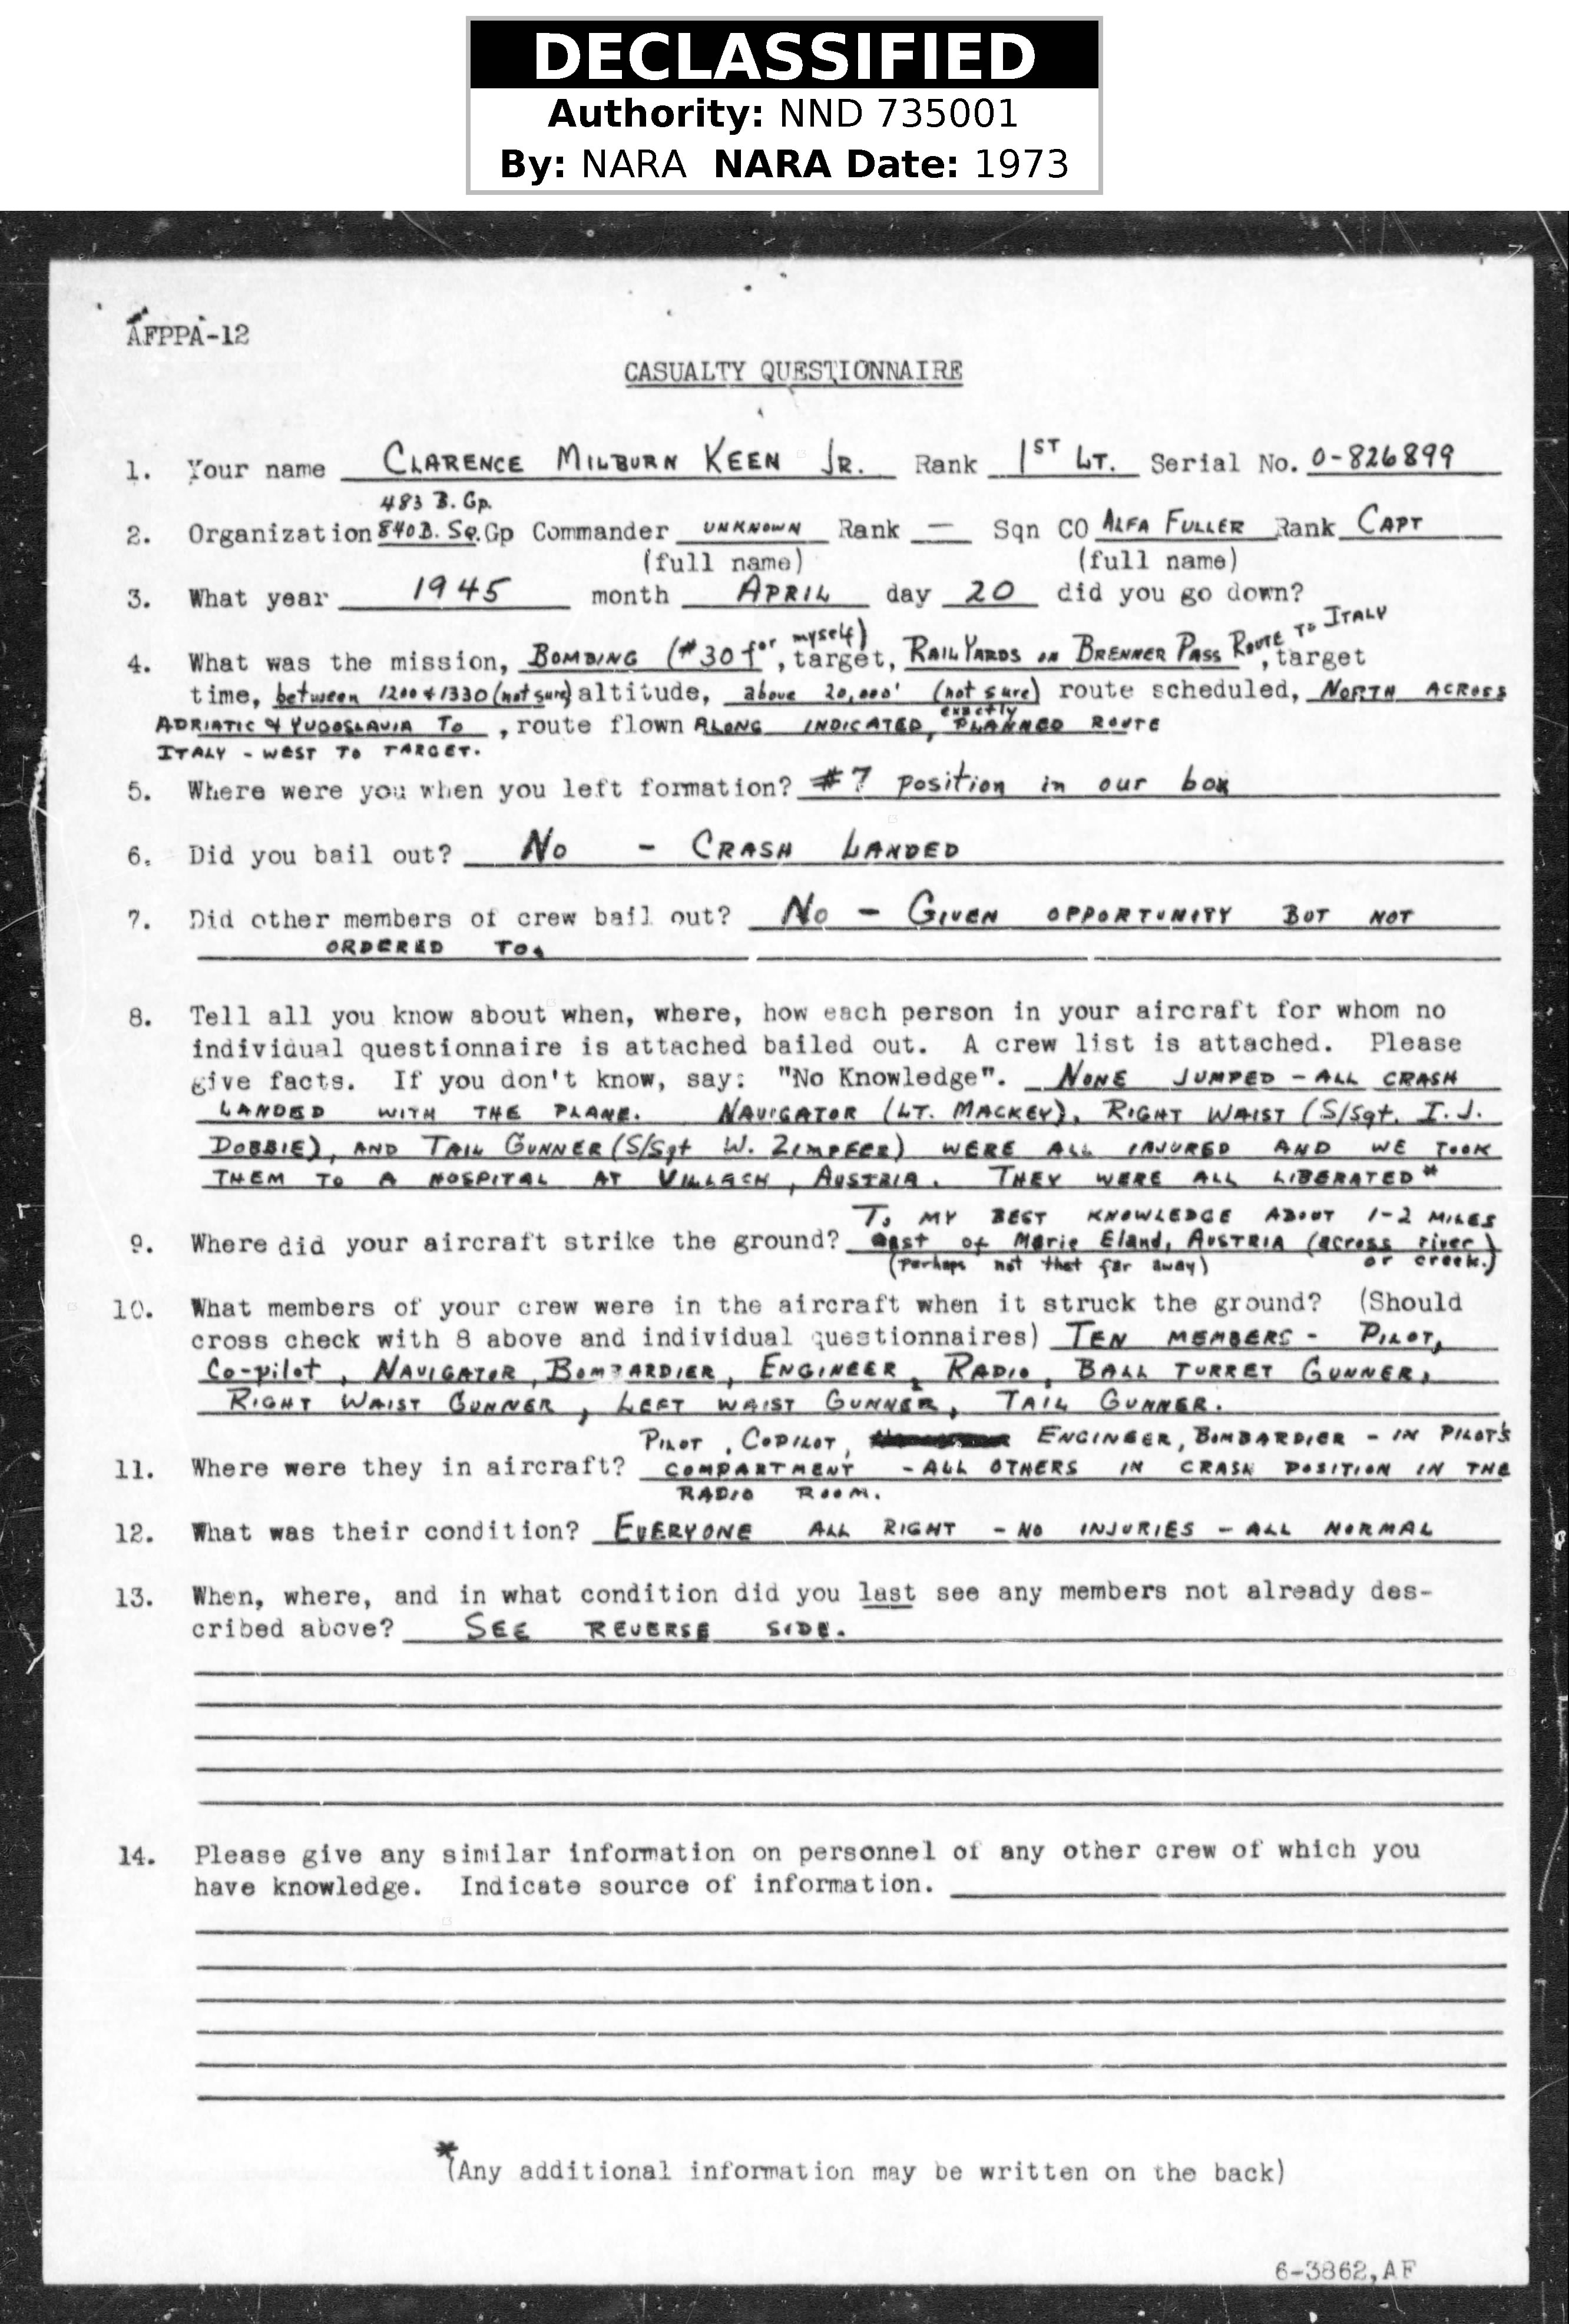 DECLASSIFIED
Authority: NND 735001
By: NARA NARA Date: 1973
AFPPA-12
CASUALTY QUESTIONNAIRE
1. Your name CLARENCE MILBURN KEEN JR. Rank 1ST LT. Serial No. O-826899
483 B. Gp.
2. Organization 840 B. Sq. Gp Commander UNKNOWN Rank — Sqn CO ALFA FULLER Rank CAPT
(full name) (full name)
3. What year 1945 month APRIL day 20 did you go down?
4. What was the mission, BOMBING (#30 for myself), target, RAIL YARDS on BRENNER PASS ROUTE TO ITALY, target
time, between 1200 & 1330 (not sure) altitude, above 20,000' (not sure) route scheduled, NORTH ACROSS
exactly
ADRIATIC & YUGOSLAVIA TO, route flown ALONG INDICATED, PLANNED ROUTE
ITALY - WEST TO TARGET.
5. Where were you when you left formation? #7 position in our box
6. Did you bail out? No - CRASH LANDED
7. Did other members of crew bail out? No - GIVEN OPPORTUNITY BUT NOT
ORDERED TO.
8. Tell all you know about when, where, how each person in your aircraft for whom no
individual questionnaire is attached bailed out. A crew list is attached. Please
give facts. If you don't know, say: "No Knowledge". NONE JUMPED - ALL CRASH
LANDED WITH THE PLANE. NAVIGATOR (LT. MACKEY), RIGHT WAIST (S/Sgt. I. J.
DOBBIE), AND TAIL GUNNER (S/Sgt W. ZIMPFER) WERE ALL INJURED AND WE TOOK
THEM TO A HOSPITAL AT VILLACH, AUSTRIA. THEY WERE ALL LIBERATED*
TO MY BEST KNOWLEDGE ABOUT 1-2 MILES
9. Where did your aircraft strike the ground? east of Marie Eland, AUSTRIA (across river
(Perhaps not that far away) or creek.)
10. What members of your crew were in the aircraft when it struck the ground? (Should
cross check with 8 above and individual questionnaires) TEN MEMBERS - PILOT,
Co-pilot, NAVIGATOR, BOMBARDIER, ENGINEER, RADIO, BALL TURRET GUNNER,
RIGHT WAIST GUNNER, LEFT WAIST GUNNER, TAIL GUNNER.
PILOT, COPILOT, ENGINEER, BOMBARDIER - IN PILOT'S
11. Where were they in aircraft? COMPARTMENT - ALL OTHERS IN CRASH POSITION IN THE
RADIO ROOM.
12. What was their condition? EVERYONE ALL RIGHT - NO INJURIES - ALL NORMAL
13. When, where, and in what condition did you last see any members not already des-
cribed above? SEE REVERSE SIDE.
14. Please give any similar information on personnel of any other crew of which you
have knowledge. Indicate source of information.
*
(Any additional information may be written on the back)
6-3862,AF